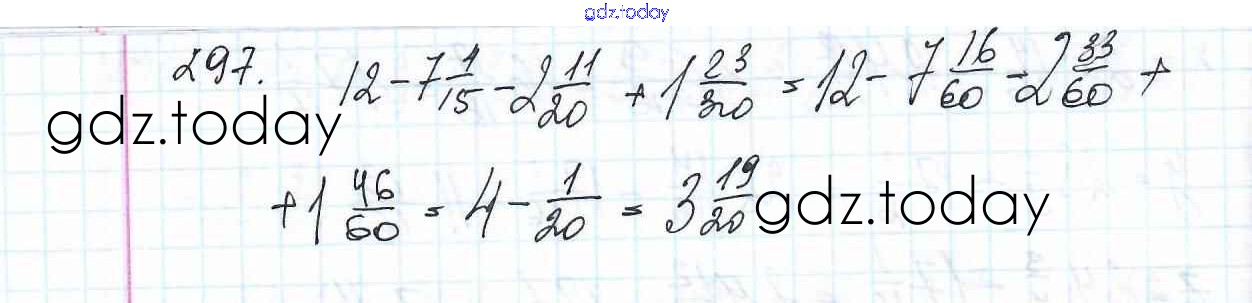 gdz.today
297. 12 - 7 1/15 - 2 11/20 + 1 23/30 = 12 - 7 16/60 - 2 33/60 +
gdz.today
+ 1 46/60 = 4 - 1/20 = 3 19/20 gdz.today